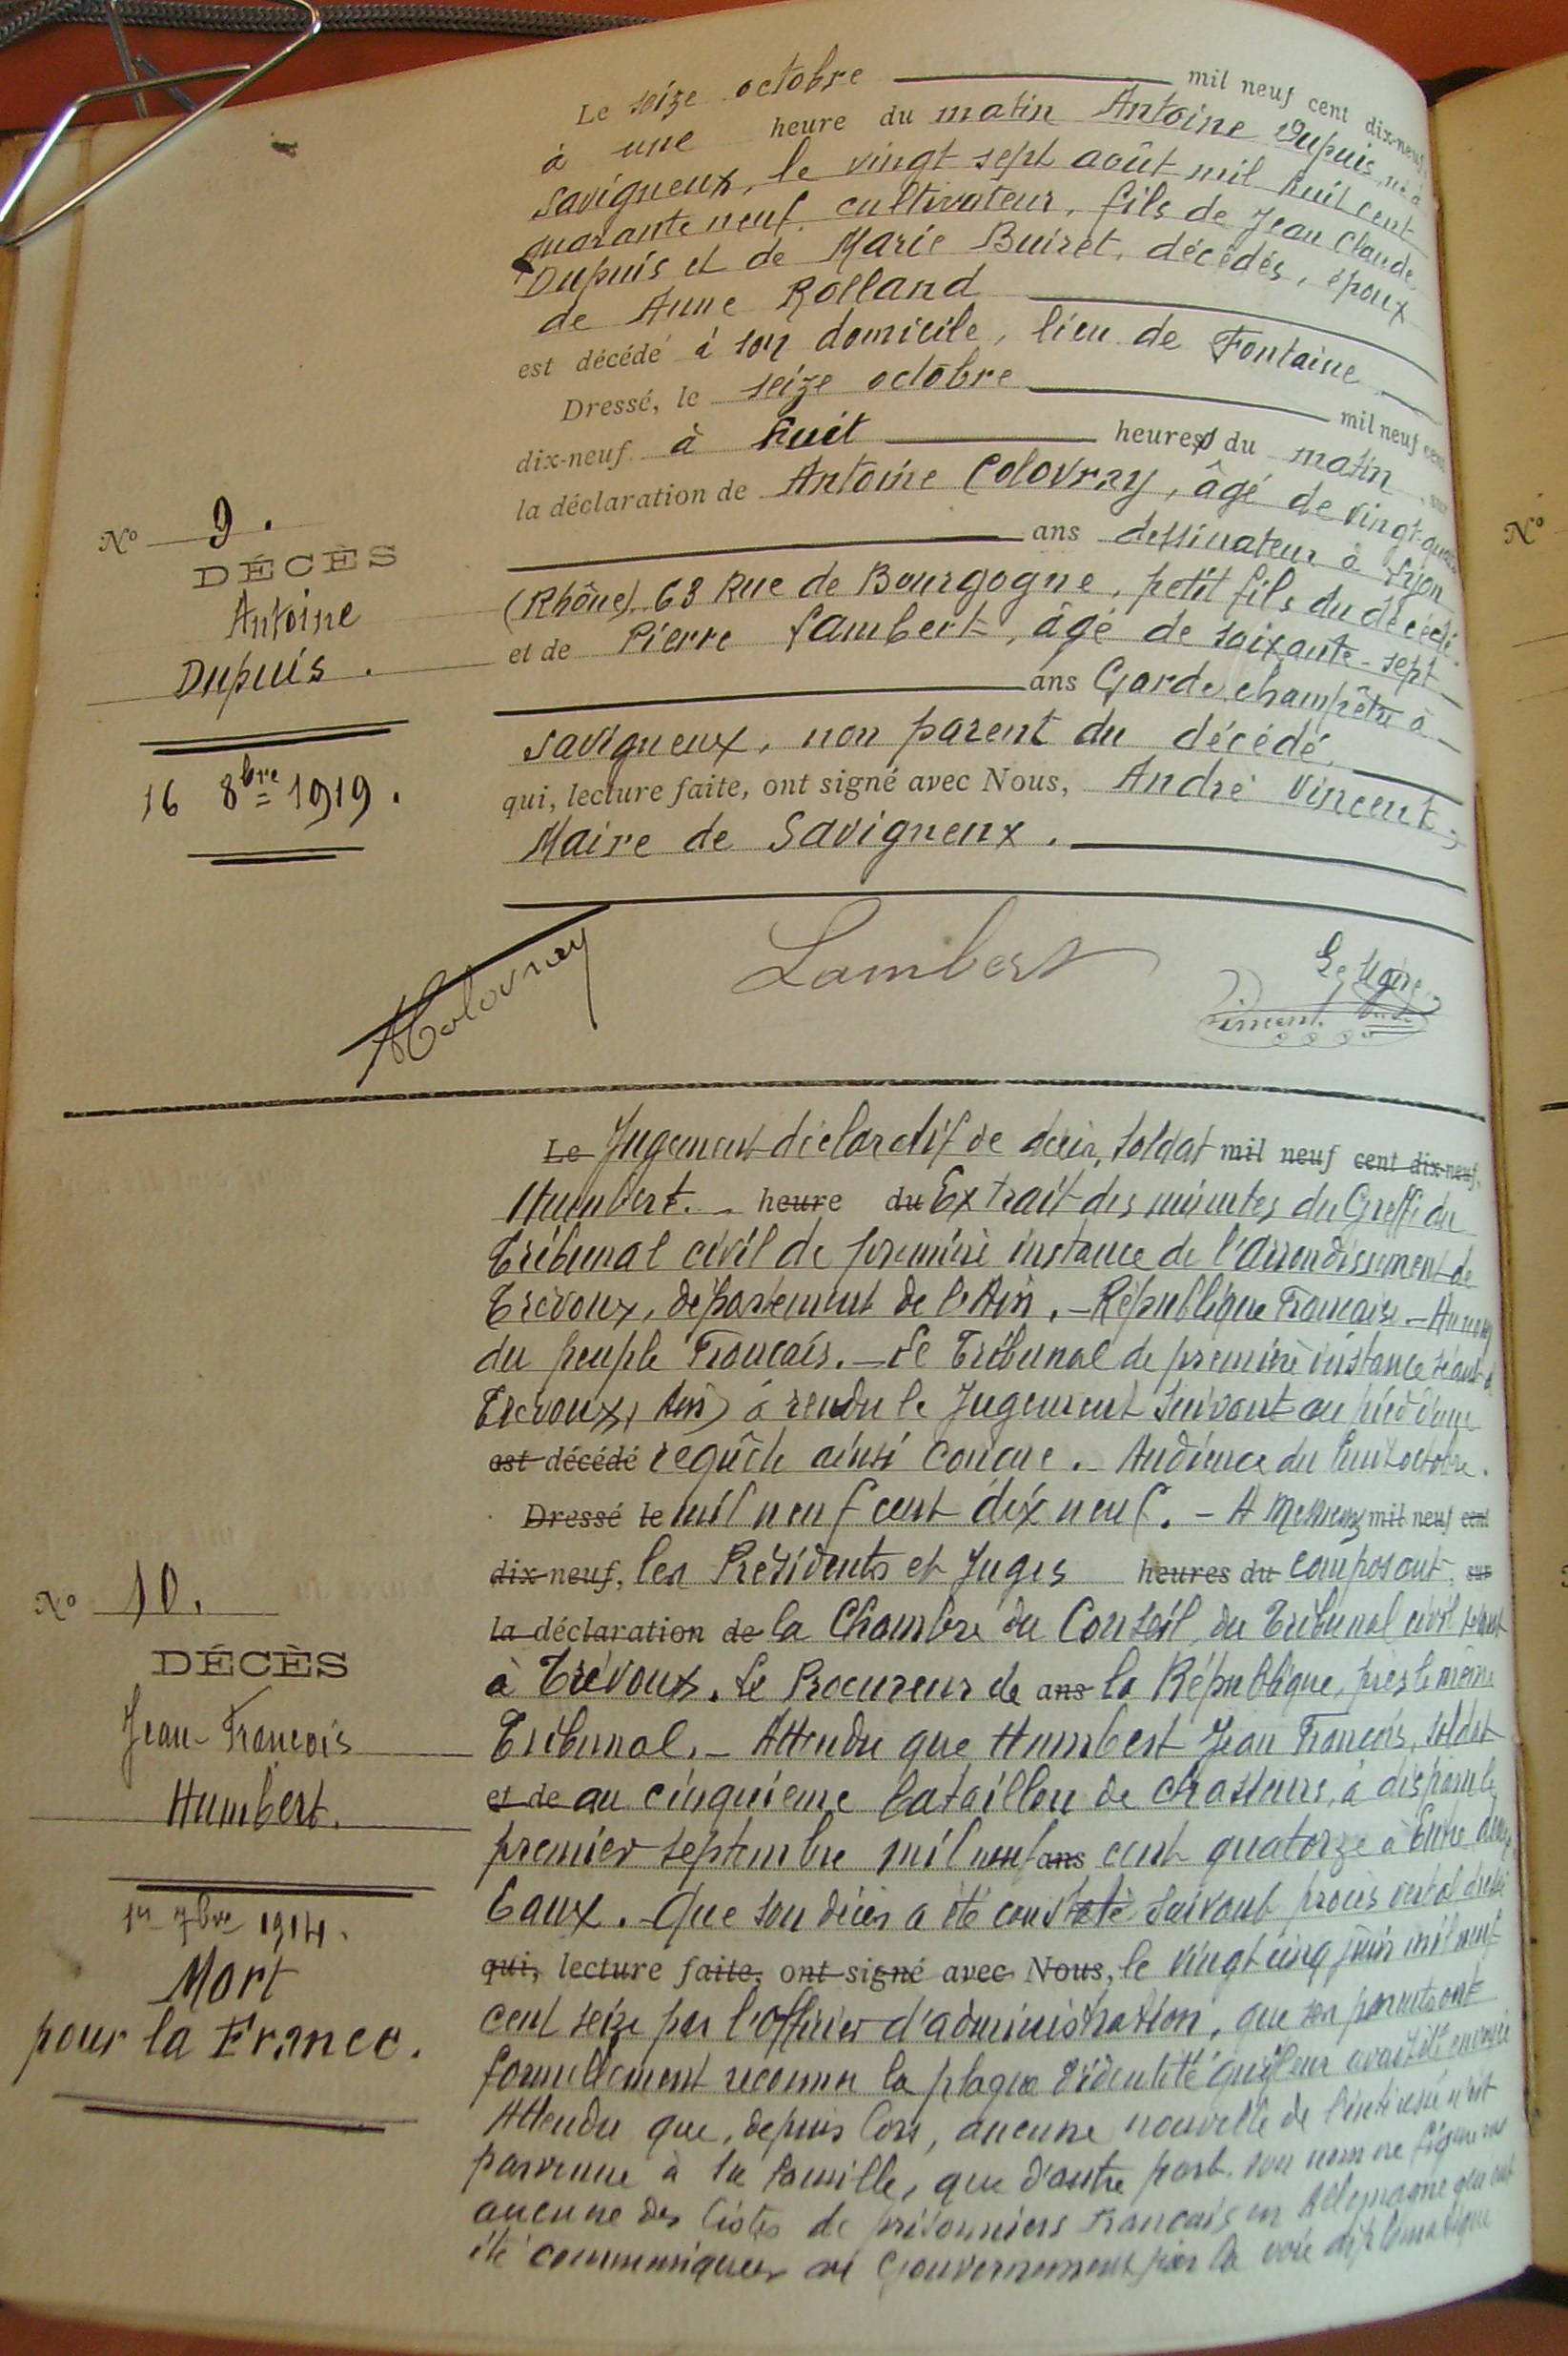 Le seize octobre mil neuf cent dix-neuf
à une heure du matin Antoine Dupuis, né à
Savigneux, le vingt sept août mil huit cent
quarante neuf, cultivateur, fils de Jean Claude
Dupuis et de Marie Buiret, décédés, époux
de Anne Rolland
est décédé à son domicile, lieu de Fontaine
Dressé, le seize octobre mil neuf cent
dix-neuf à huit heures du matin, sur
la déclaration de Antoine Colovray, âgé de vingt-quatre
ans dessinateur à Lyon
(Rhône), 63 Rue de Bourgogne, petit fils du décédé.
et de Pierre Lambert, âgé de soixante-sept
ans Garde champêtre à
Savigneux, non parent du décédé,
qui, lecture faite, ont signé avec Nous, André Vincent,
Maire de Savigneux.
No 9.
DÉCÈS
Antoine
Dupuis.
16 8bre 1919.
AColovray
Lambert
Le Maire
Vincent
Le Jugement déclaratif de décès, soldat mil neuf cent dix-neuf,
Humbert. - heure du Extrait des minutes du Greffe du
Tribunal civil de première instance de l'arrondissement de
Trévoux, département de l'Ain. - République Française - Au nom
du peuple Français. - Le Tribunal de première instance séant à
Trévoux, Ain) à rendu le Jugement suivant au pied d'une
est décédé requête ainsi concue. - Audience du huit octobre.
Dressé le mil neuf cent dix neuf. - A Messieurs mil neuf cent
dix-neuf, les Présidents et Juges heures du composant, sur
la déclaration de la Chambre du Conseil, du Tribunal civil séant
à Trévoux. Le Procureur de ans la République, près le même
Tribunal. - Attendu que Humbert Jean François, soldat
et de au cinquième bataillon de chasseurs, à disparu le
premier septembre mil neuf ans cent quatorze à Entre deux
Eaux. - Que son décès a été constaté suivant procès verbal dressé
qui, lecture faite, ont signé avec Nous, le vingt cinq juin mil neuf
cent seize par l'Officier d'administration, que ses parents ont
formellement reconnu la plaque d'identité qui leur avait été envoyée
Attendu que, depuis lors, aucune nouvelle de l'intéressé n'est
parvenue à sa famille, que d'autre part son nom ne figure sur
aucune des listes de prisonniers Français en Allemagne qui ont
été communiquées au Gouvernement par la voie diplomatique
No 10.
DÉCÈS
Jean-François
Humbert.
1er 7bre 1914.
Mort
pour la France.
No